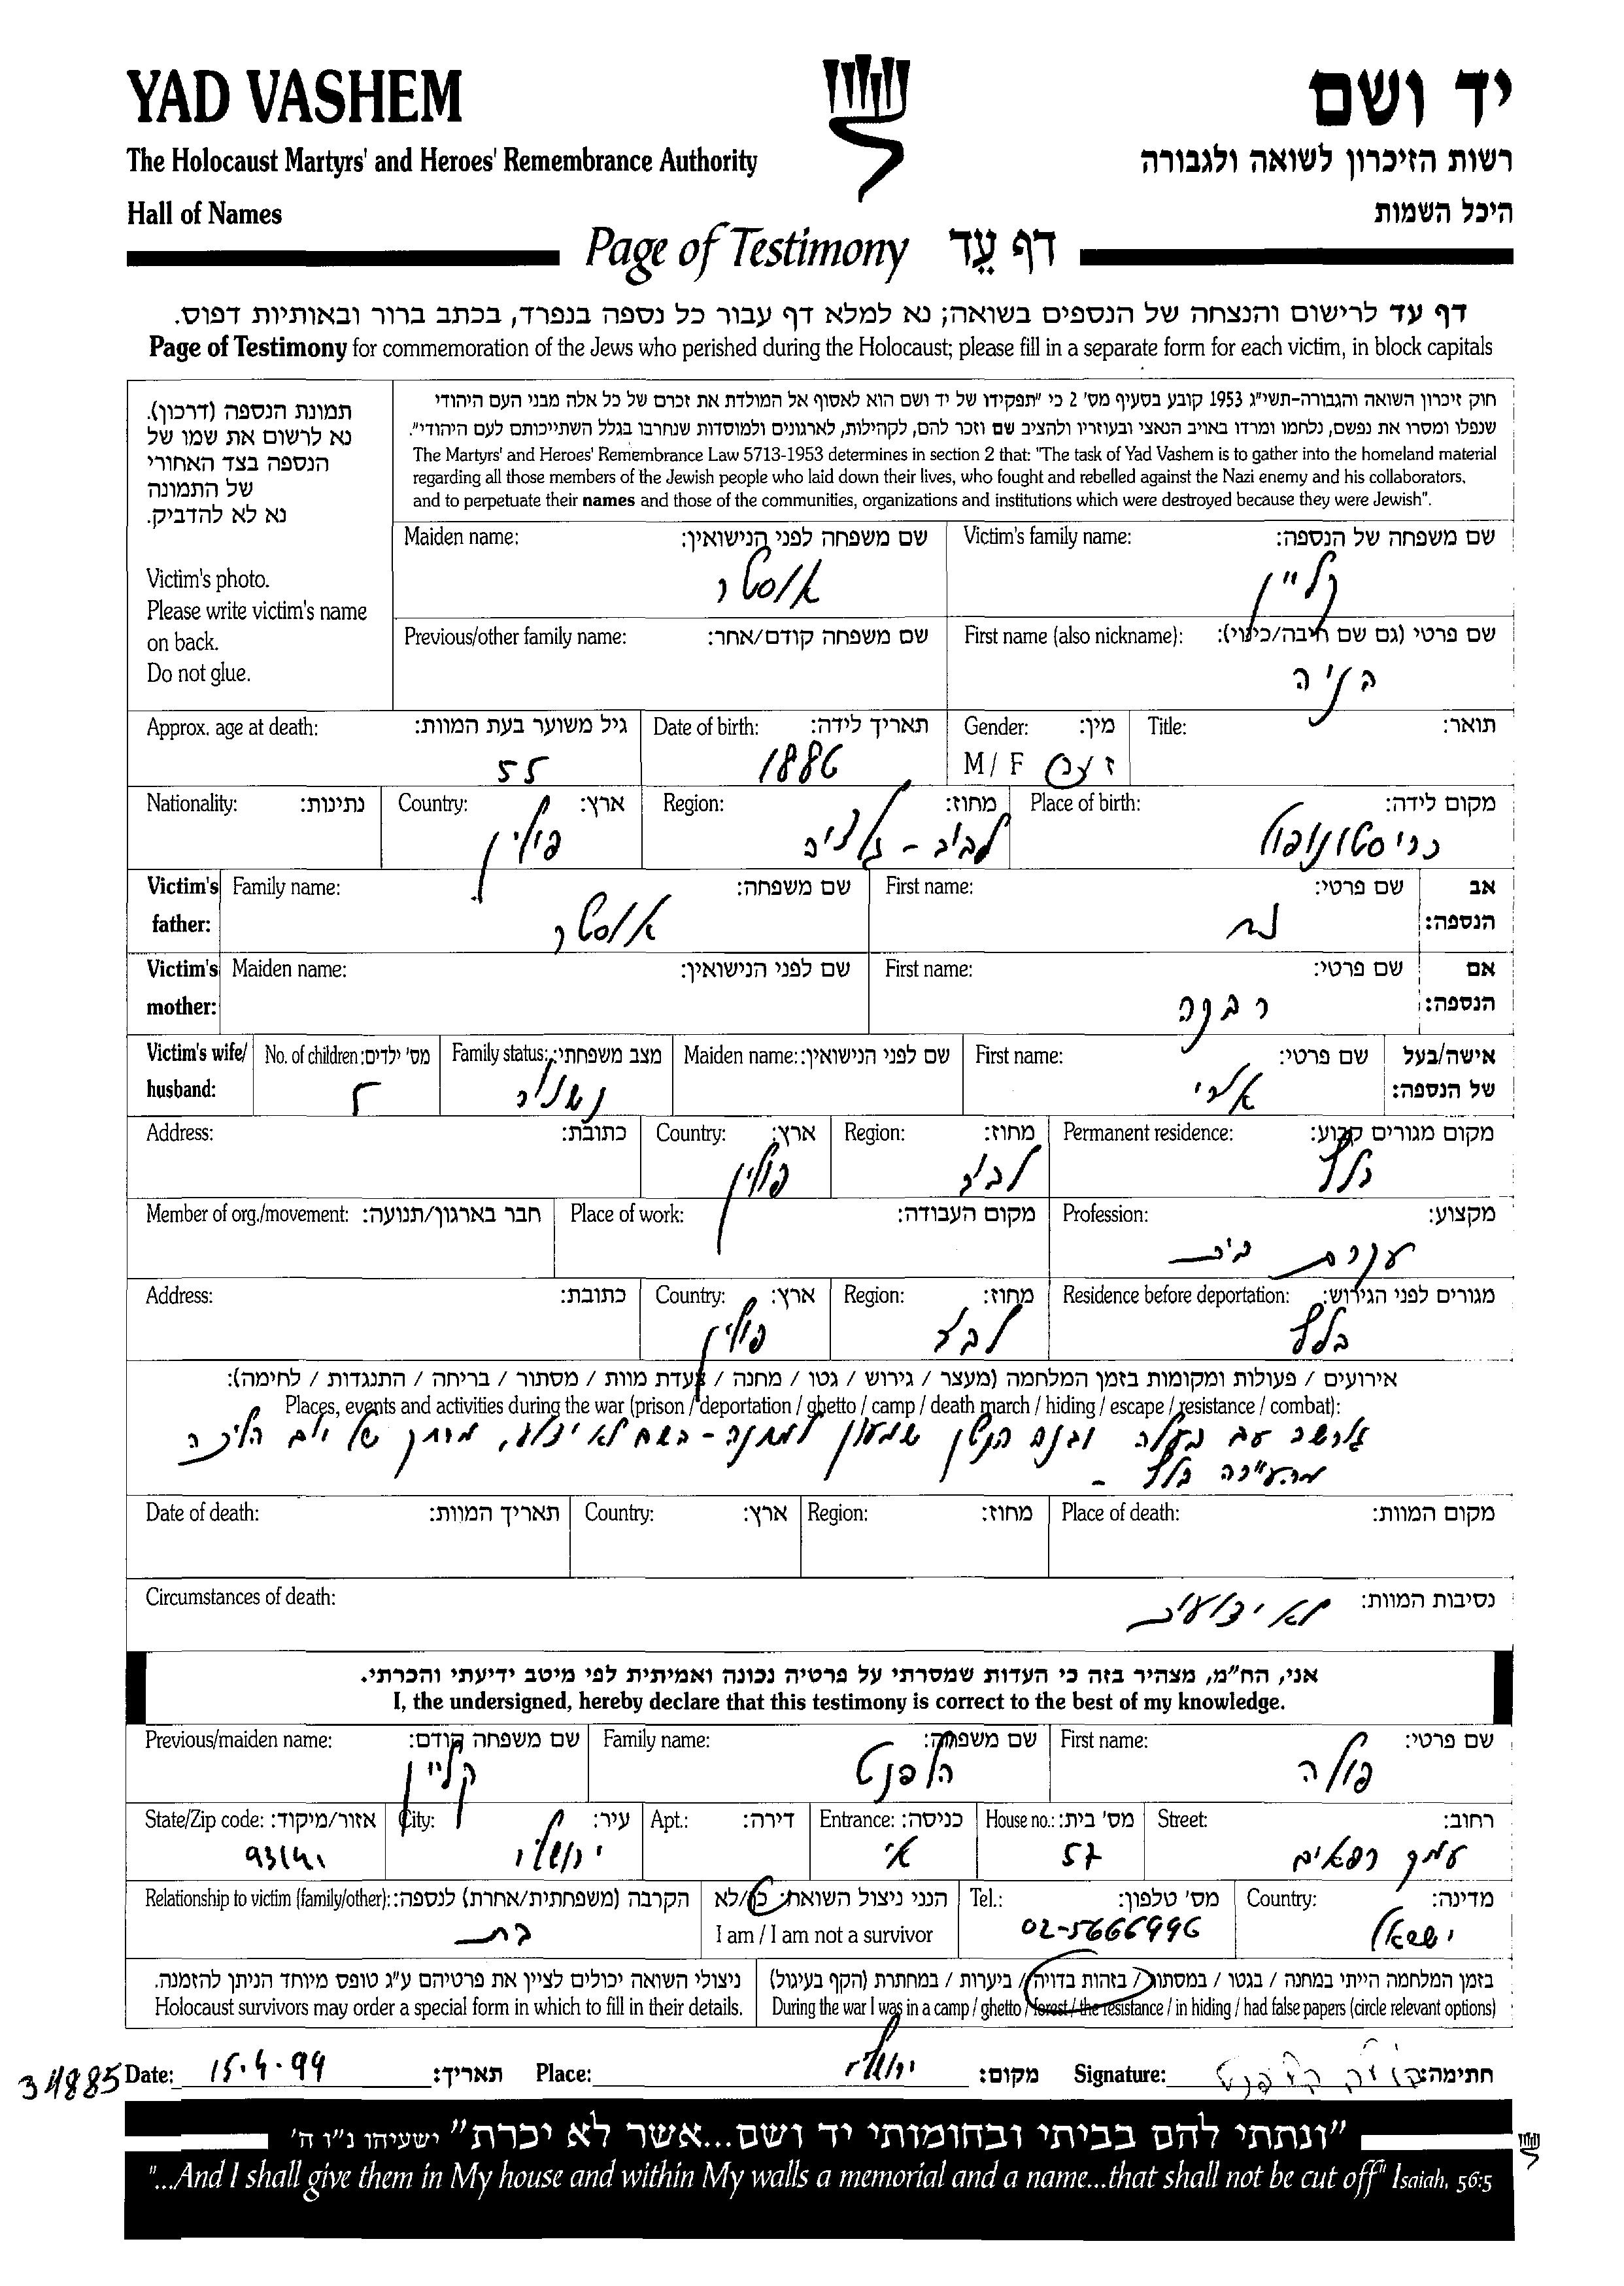 YAD VASHEM
יד ושם
The Holocaust Martyrs' and Heroes' Remembrance Authority
רשות הזיכרון לשואה ולגבורה
Hall of Names
היכל השמות
Page of Testimony דף עֵד
דף עד לרישום והנצחה של הנספים בשואה; נא למלא דף עבור כל נספה בנפרד, בכתב ברור ובאותיות דפוס.
Page of Testimony for commemoration of the Jews who perished during the Holocaust; please fill in a separate form for each victim, in block capitals
תמונת הנספה (דרכון).
נא לרשום את שמו של
הנספה בצד האחורי
של התמונה
נא לא להדביק.
Victim's photo.
Please write victim's name
on back.
Do not glue.
חוק זיכרון השואה והגבורה-תשי"ג 1953 קובע בסעיף מס' 2 כי "תפקידו של יד ושם הוא לאסוף אל המולדת את זכרם של כל אלה מבני העם היהודי
שנפלו ומסרו את נפשם, נלחמו ומרדו באויב הנאצי ובעוזריו ולהציב שם וזכר להם, לקהילות, לארגונים ולמוסדות שנחרבו בגלל השתייכותם לעם היהודי".
The Martyrs' and Heroes' Remembrance Law 5713-1953 determines in section 2 that: "The task of Yad Vashem is to gather into the homeland material
regarding all those members of the Jewish people who laid down their lives, who fought and rebelled against the Nazi enemy and his collaborators,
and to perpetuate their names and those of the communities, organizations and institutions which were destroyed because they were Jewish".
Victim's family name: שם משפחה של הנספה:
קליין
Maiden name: שם משפחה לפני הנישואין:
אוסטר
First name (also nickname): שם פרטי (גם שם חיבה/כינוי):
Previous/other family name: שם משפחה קודם/אחר:
Title: תואר:
Gender: מין:
M / F ז
Date of birth: תאריך לידה:
1886
Approx. age at death: גיל משוער בעת המוות:
55
Place of birth: מקום לידה:
כריסטונופול
Region: מחוז:
לבוב - גליציה
Country: ארץ:
פולין
Nationality: נתינות:
Victim's father: אב הנספה:
First name: שם פרטי:
נח
Family name: שם משפחה:
אוסטר
Victim's mother: אם הנספה:
First name: שם פרטי:
רבקה
Maiden name: שם לפני הנישואין:
Victim's wife/ husband: אישה/בעל של הנספה:
First name: שם פרטי:
ארי
Maiden name: שם לפני הנישואין:
Family status: מצב משפחתי:
נשואה
No. of children: מס' ילדים:
5
Permanent residence: מקום מגורים קבוע:
בלז
Region: מחוז:
לבוב
Country: ארץ:
פולין
Address: כתובת:
Profession: מקצוע:
עקרת בית
Place of work: מקום העבודה:
Member of org./movement: חבר בארגון/תנועה:
Residence before deportation: מגורים לפני הגירוש:
בלז
Region: מחוז:
לבוב
Country: ארץ:
פולין
Address: כתובת:
אירועים / פעולות ומקומות בזמן המלחמה (מעצר / גירוש / גטו / מחנה / צעדת מוות / מסתור / בריחה / התנגדות / לחימה):
Places, events and activities during the war (prison / deportation / ghetto / camp / death march / hiding / escape / resistance / combat):
גורשה עם בעלה ובנם הקטן שמעון למחנה - השם לא ידוע, מרחק של יום הליכה
מהעיירה בלז -
Place of death: מקום המוות:
Region: מחוז:
Country: ארץ:
Date of death: תאריך המוות:
Circumstances of death: נסיבות המוות:
לא ידועות
אני, הח"מ, מצהיר בזה כי העדות שמסרתי על פרטיה נכונה ואמיתית לפי מיטב ידיעתי והכרתי.
I, the undersigned, hereby declare that this testimony is correct to the best of my knowledge.
First name: שם פרטי:
פולה
Family name: שם משפחה:
הלפנט
Previous/maiden name: שם משפחה קודם:
קליין
Street: רחוב:
עמק רפאים
House no.: מס' בית:
57
Entrance: כניסה:
א'
Apt.: דירה:
City: עיר:
ירושלים
State/Zip code: אזור/מיקוד:
Country: מדינה:
ישראל
Tel.: מס' טלפון:
02-5666996
הנני ניצול השואה: כן/לא
I am / I am not a survivor
Relationship to victim (family/other): הקרבה (משפחתית/אחרת) לנספה:
בת
בזמן המלחמה הייתי במחנה / בגטו / במסתור / בזהות בדויה / ביערות / במחתרת (הקף בעיגול)
During the war I was in a camp / ghetto / forest / the resistance / in hiding / had false papers (circle relevant options)
ניצולי השואה יכולים לציין את פרטיהם ע"ג טופס מיוחד הניתן להזמנה.
Holocaust survivors may order a special form in which to fill in their details.
34885 Date: 15.4.99 תאריך: Place: ירושלים מקום: Signature: פולה הלפנט חתימה:
"ונתתי להם בביתי ובחומותי יד ושם...אשר לא יכרת" ישעיהו נ"ו ה'
"...And I shall give them in My house and within My walls a memorial and a name...that shall not be cut off" Isaiah, 56:5